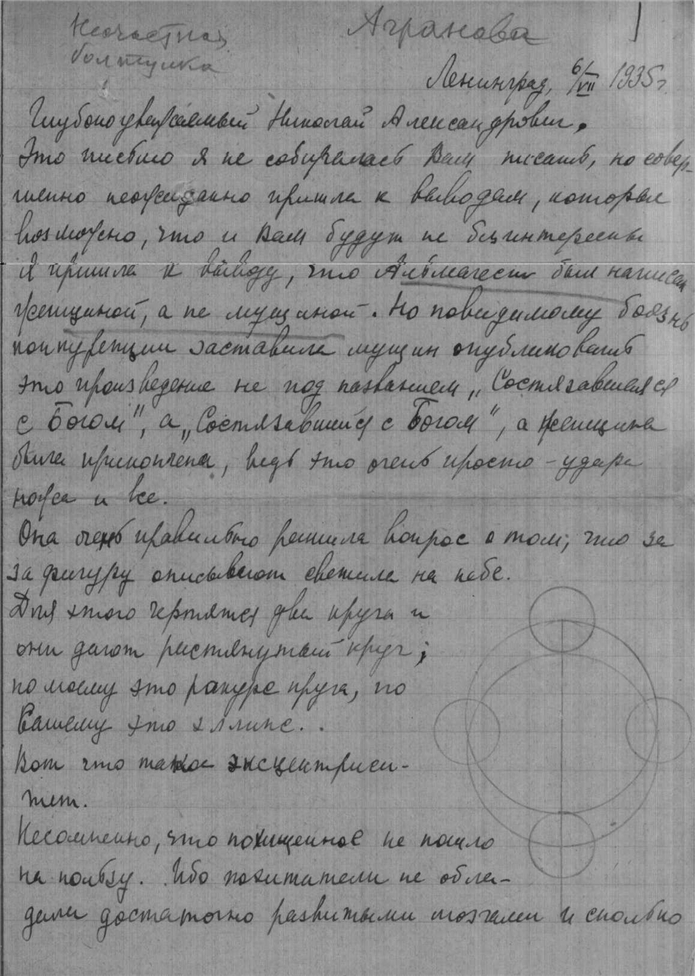 Несчастная Агранова
болтушка
Ленинград, 6/VII 1935 г.
Глубокоуважаемый Николай Александрович.
Это письмо я не собиралась Вам писать, но совер-
шенно неожиданно пришла к выводам, которые
возможно, что и Вам будут не безинтересны
Я пришла к выводу, что Альмагест был написан
женщиной, а не мущиной. Но повидимому боязнь
конкуренции заставила мущин опубликовать
это произведение не под названием „Состязавшаяся
с Богом", а „Состязавшийся с Богом", а женщина
была прикончена, ведь это очень просто – удара
ножа и все.
Она очень правильно решила вопрос о том, что за
за фигуру описывают светила на небе.
Для этого чертятся два круга и
они дают растянутый круг;
по моему это ракурс круга, по
Вашему это эллипс..
Вот что такое эксцентриси-
тет.
Несомненно, что похищенное не пошло
на пользу. Ибо похитители не обла-
дали достаточно развитыми мозгами и сколько